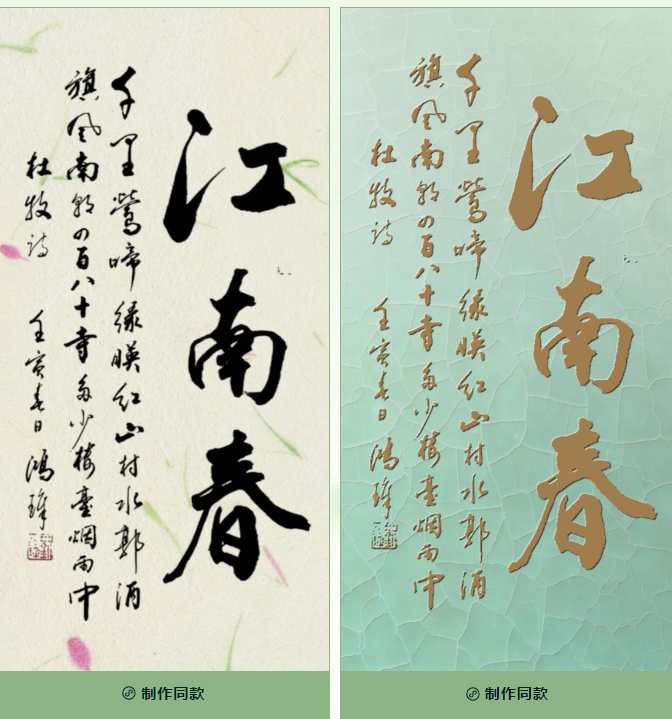 江南春
千里鶯啼绿暎红山村水郭酒
旗风南朝四百八十寺多少楼臺烟雨中
杜牧诗
壬寅春日鸿
制作同款
江南春
千里鶯啼绿暎红山村水郭酒
旗风南朝四百八十寺多少楼臺烟雨中
杜牧诗
壬寅春日鸿
制作同款